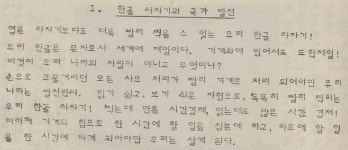 1. 한글 타자기와 국가 발전
영문 타자기보다도 더욱 빨리 찍을 수 있는 우리 한글 타자기!
우리 한글은 문자로서 세계에 제일이다. 기계화에 있어서도 또한 제일!
이것이 우리 나라의 자랑이 아니고 무엇이냐?
손으로 꾸물거리던 모든 사무 처리가 빨리 기계로 처리 되어야만 우리
나라는 발전한다. 읽기 쉽고, 보기 쉬운 자형으로, 똑똑히 빨리 찍히는
우리 한글 타자기! 찍는데 만흔 시간경제, 읽는데도 많은 시간 경제!
이러케 기계의 힘으로 한 시간에 할 일을 십분에 하고, 하루에 할 일
을 한 시간에 하게 되어야만 우리는 살게 된다.